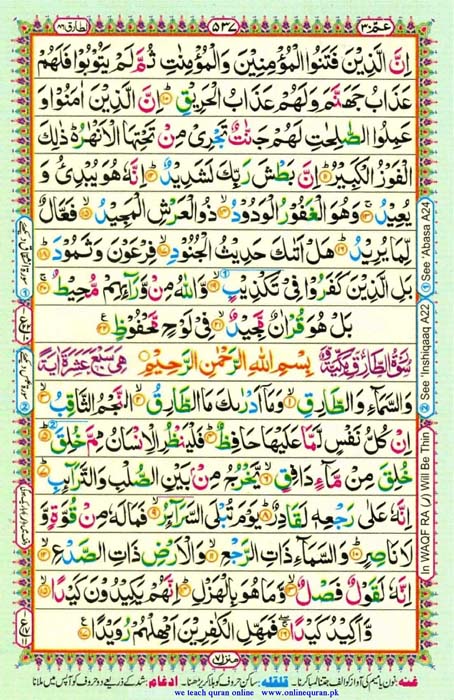 الطارق ٨٦
٥٣٧
عمّ ٣٠
اِنَّ الَّذِيْنَ فَتَنُوا الْمُؤْمِنِيْنَ وَالْمُؤْمِنٰتِ ثُمَّ لَمْ يَتُوْبُوْا فَلَهُمْ
عَذَابُ جَهَنَّمَ وَلَهُمْ عَذَابُ الْحَرِيْقِ ۝۱۰ اِنَّ الَّذِيْنَ اٰمَنُوْا وَ
عَمِلُوا الصّٰلِحٰتِ لَهُمْ جَنّٰتٌ تَجْرِيْ مِنْ تَحْتِهَا الْاَنْهٰرُ ذٰلِكَ
الْفَوْزُ الْكَبِيْرُ ۝۱۱ اِنَّ بَطْشَ رَبِّكَ لَشَدِيْدٌ ۝۱۲ اِنَّهٗ هُوَ يُبْدِئُ وَ
يُعِيْدُ ۝۱۳ وَهُوَ الْغَفُوْرُ الْوَدُوْدُ ۝۱۴ ذُو الْعَرْشِ الْمَجِيْدُ ۝۱۵ فَعَّالٌ
لِّمَا يُرِيْدُ ۝۱۶ هَلْ اَتٰىكَ حَدِيْثُ الْجُنُوْدِ ۝۱۷ فِرْعَوْنَ وَثَمُوْدَ ۝۱۸
بَلِ الَّذِيْنَ كَفَرُوْا فِيْ تَكْذِيْبٍ ۝۱۹ وَّاللّٰهُ مِنْ وَّرَآئِهِمْ مُّحِيْطٌ ۝۲۰
بَلْ هُوَ قُرْاٰنٌ مَّجِيْدٌ ۝۲۱ فِيْ لَوْحٍ مَّحْفُوْظٍ ۝۲۲
سُوْرَةُ الطَّارِقِ مَكِّيَّةٌ بِسْمِ اللّٰهِ الرَّحْمٰنِ الرَّحِيْمِ هِيَ سَبْعَ عَشْرَةَ اٰيَةً
وَالسَّمَآءِ وَالطَّارِقِ ۝۱ وَمَآ اَدْرٰىكَ مَا الطَّارِقُ ۝۲ النَّجْمُ الثَّاقِبُ ۝۳
اِنْ كُلُّ نَفْسٍ لَّمَّا عَلَيْهَا حَافِظٌ ۝۴ فَلْيَنْظُرِ الْاِنْسَانُ مِمَّ خُلِقَ ۝۵
خُلِقَ مِنْ مَّآءٍ دَافِقٍ ۝۶ يَّخْرُجُ مِنْۢ بَيْنِ الصُّلْبِ وَالتَّرَآئِبِ ۝۷
اِنَّهٗ عَلٰى رَجْعِهٖ لَقَادِرٌ ۝۸ يَوْمَ تُبْلَى السَّرَآئِرُ ۝۹ فَمَا لَهٗ مِنْ قُوَّةٍ وَّ
لَا نَاصِرٍ ۝۱۰ وَالسَّمَآءِ ذَاتِ الرَّجْعِ ۝۱۱ وَالْاَرْضِ ذَاتِ الصَّدْعِ ۝۱۲
اِنَّهٗ لَقَوْلٌ فَصْلٌ ۝۱۳ وَّمَا هُوَ بِالْهَزْلِ ۝۱۴ اِنَّهُمْ يَكِيْدُوْنَ كَيْدًا ۝۱۵
وَّاَكِيْدُ كَيْدًا ۝۱۶ فَمَهِّلِ الْكٰفِرِيْنَ اَمْهِلْهُمْ رُوَيْدًا ۝۱۷
منزل ٧
① See 'Abasa A24
② See 'Inshiqaaq A22
In WAQF RA (ر) Will Be Thin
غنہ: نون یا میم کی آواز کو الف جتنا لمبا کرنا۔ قلقلہ: ساکن حروف کو ہلا کر پڑھنا۔ ادغام: شد کے ذریعے دو حروف کو آپس میں ملانا
we teach quran online www.onlinequran.pk